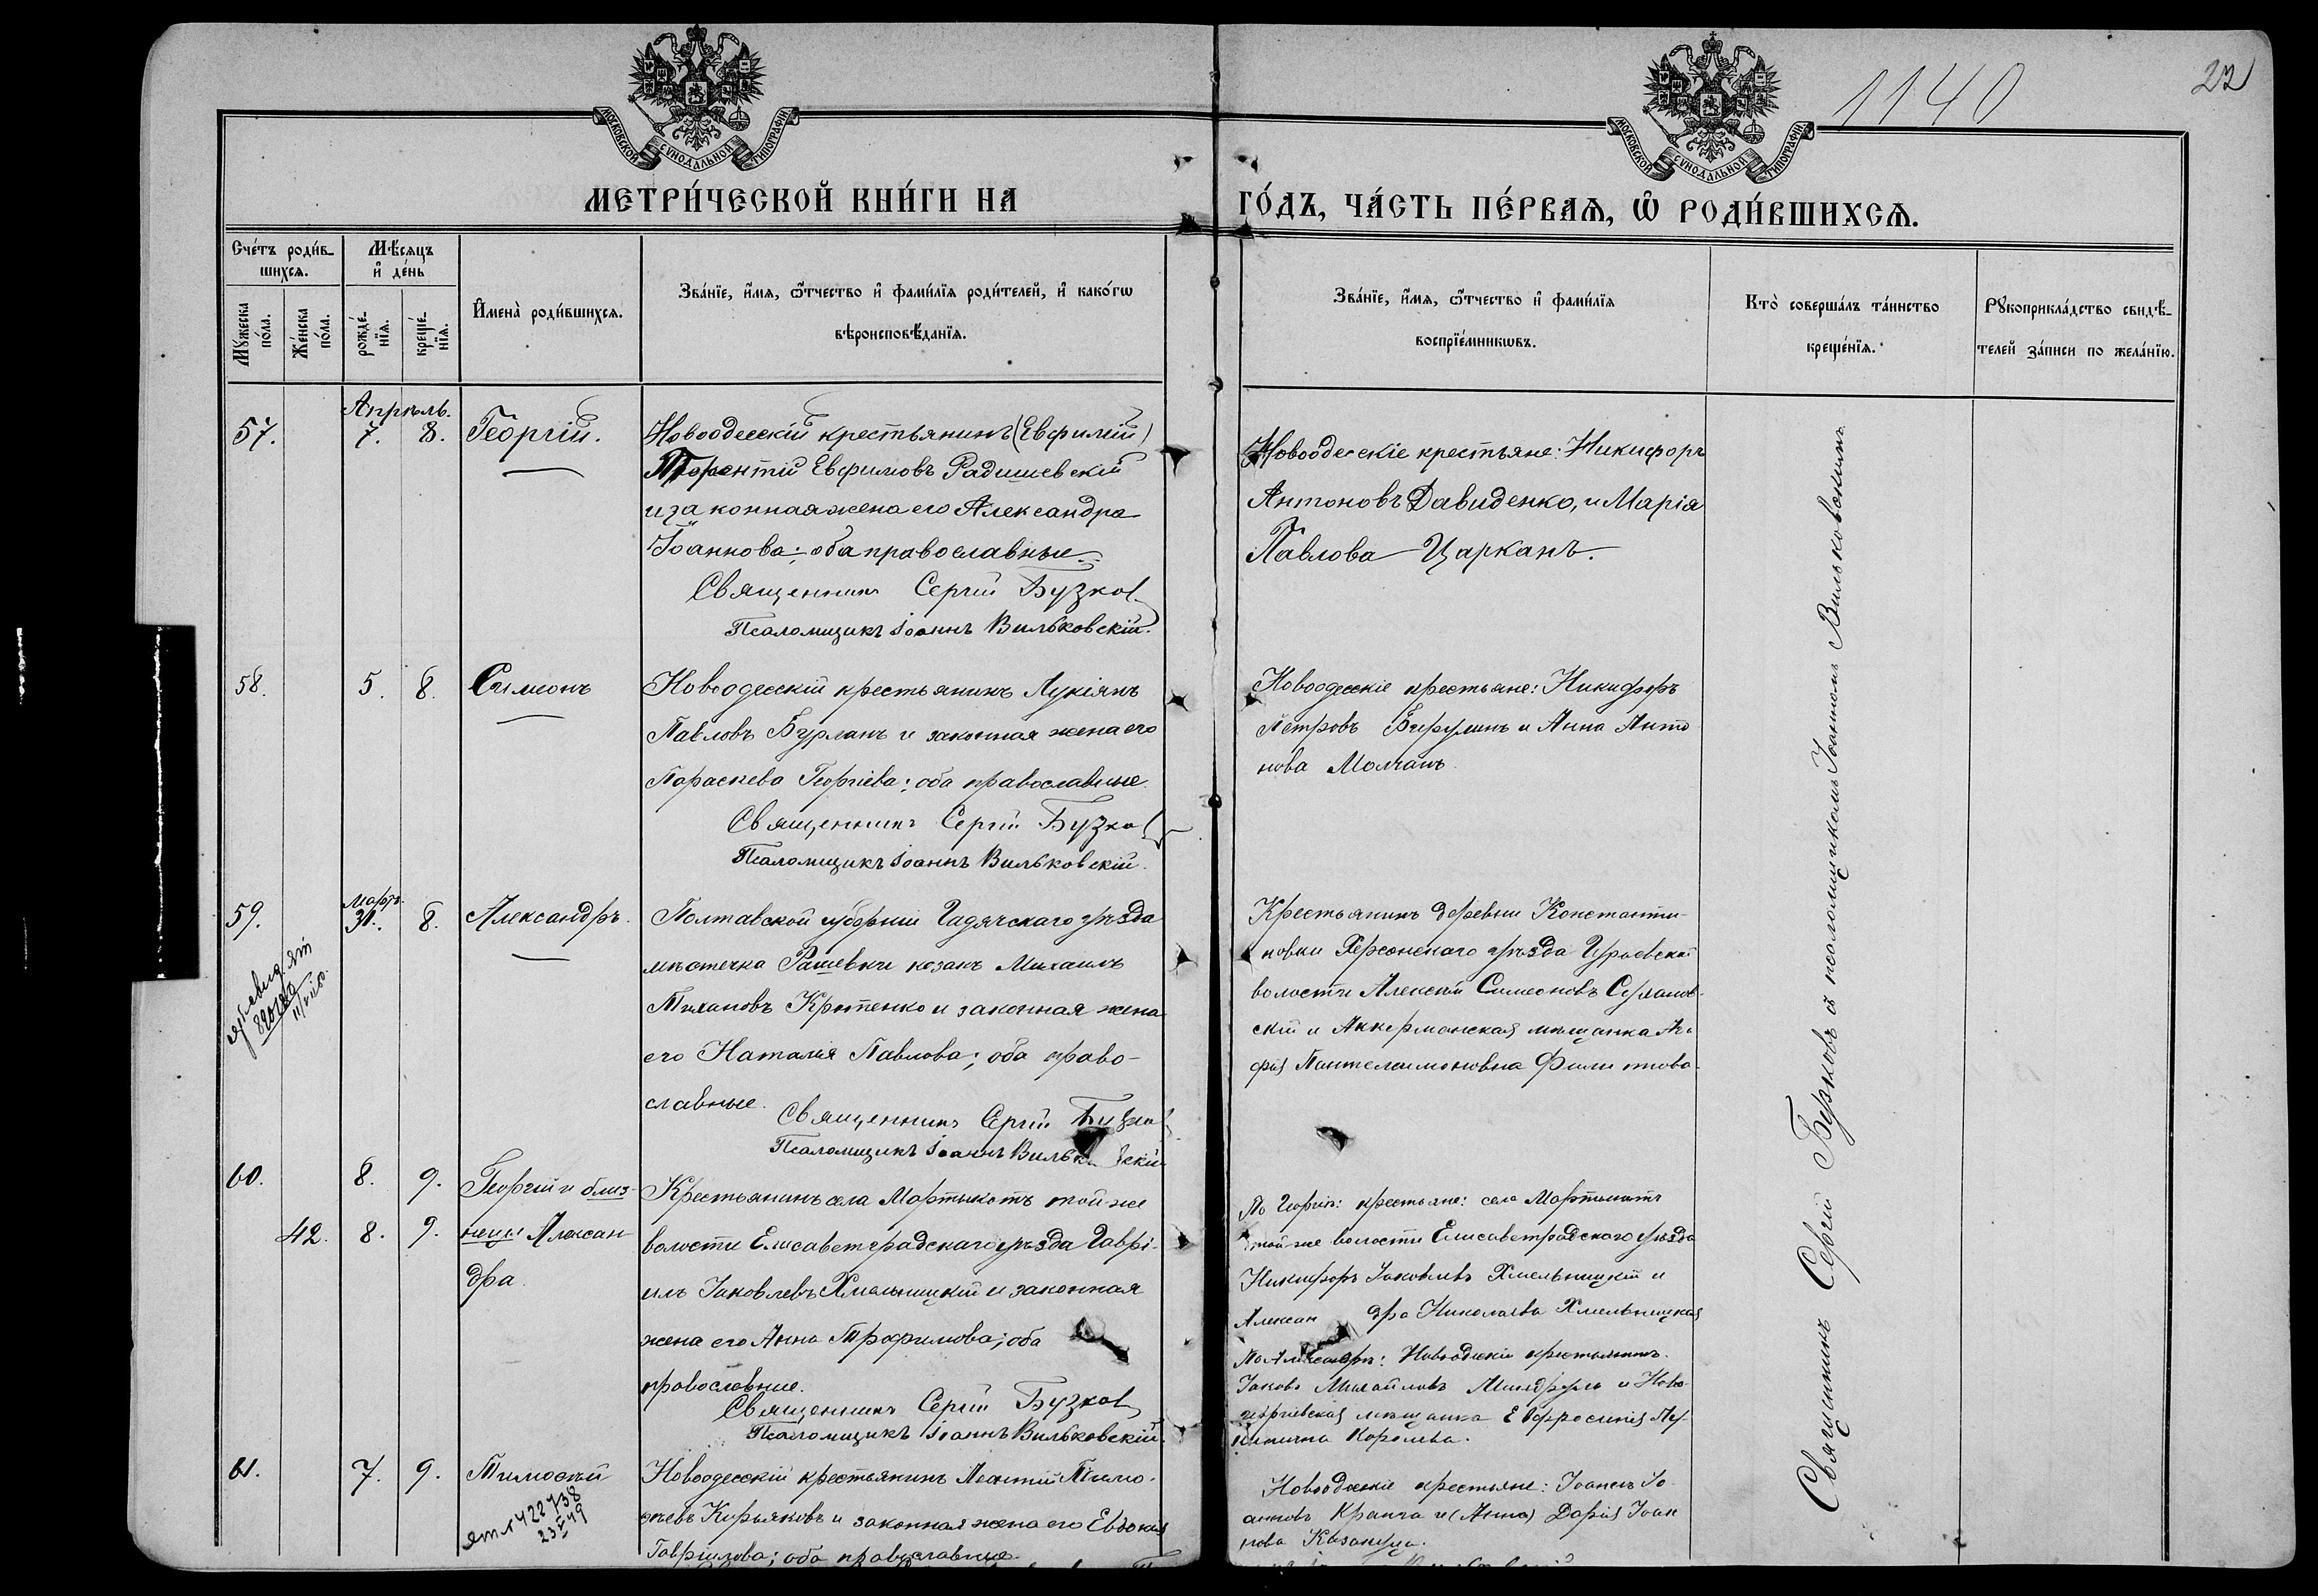 1140
22
МОСКОВСКОЙ СѴНОДАЛЬНОЙ ТИПОГРАФІИ
МОСКОВСКОЙ СѴНОДАЛЬНОЙ ТИПОГРАФІИ
МЕТРИ́ЧЕСКОЙ КНИ́ГИ НА
ГО́ДЪ, ЧА́СТЬ ПЕ́РВАѦ, Ѽ РОДИ́ВШИХСѦ.
Сче́тъ роди́в-
шихсѧ.
Мѣ́сѧцъ
и҆ де́нь
Мꙋ́жеска
по́ла.
Же́нска
по́ла.
рожде́-
нїѧ.
креще́-
нїѧ.
И҆мена̀ роди́вшихсѧ.
Зва́нїе, и҆́мѧ, ѻ҆́тчество и҆ фами́лїѧ роди́телей, и҆ како́гѡ
вѣроисповѣ́данїѧ.
Зва́нїе, и҆́мѧ, ѻ҆́тчество и҆ фами́лїѧ
воспрїе́мникѡвъ.
Кто̀ соверша́лъ та́инство
креще́нїѧ.
Рꙋкоприкла́дство свидѣ́-
телей за́писи по жела́нїю.
Апрѣль.
57. 7. 8. Георгій.
Новоодесскій крестьянинъ (Евфимій)
Терентій Евфимовъ Радишевскій
и законная жена его Александра
Іоаннова; оба православные.
Священникъ Сергій Бузков
Псаломщикъ Іоаннъ Вильковскій.
Новоодесскіе крестьяне: Никифоръ
Антоновъ Давиденко, и Марія
Павлова Царканъ.
58. 5. 8. Симеонъ
Новоодесскій крестьянинъ Лукіянъ
Павловъ Бурланъ и законная жена его
Параскева Георгіева; оба православные.
Священникъ Сергій Бузков
Псаломщикъ Іоаннъ Вильковскій.
Новоодесскіе крестьяне: Никифоръ
Петровъ и Анна Анто
нова Молчанъ.
Мартъ.
59. 31. 8. Александръ.
Полтавской губерніи Гадячскаго уѣзда
мѣстечка Рашевки козакъ Михаилъ
Тихановъ Крутенко и законная жена
его Наталія Павлова; оба право-
славные.
Священникъ Сергій Бузков
Псаломщикъ Іоаннъ Вильковскій
Крестьянинъ деревни Константи-
новки Херсонскаго уѣзда
волости Алексѣй Симеоновъ
скій и Аккерманская мѣщанка
Пантелеимоновна Филипова.
60. 8. 9. Георгій и близ-
42. 8. 9. нецы Алексан
дра.
Крестьянинъ села Мартынотъ той-же
волости Елисаветградскаго уѣзда Гаврі-
илъ Іаковлевъ Хмельницкій и законная
жена его Анна Трофимова; оба
православные.
Священникъ Сергій Бузков
Псаломщикъ Іоаннъ Вильковскій.
По Георгію: крестьяне: села
той-же волости Елисаветградского уѣзда
Никифоръ Іаковлевъ Хмельницкій и
Алексан дра Николаева Хмельницкая
По Александрѣ: Новоодесскій крестьянинъ.
Іаковъ Михайловъ и Ново-
георгіевская мѣщанка Евфросинія
Королева.
61. 7. 9. Тимоѳей
ЯТ № 422738
23 V 49
Новоодесскій крестьянинъ Леонтій Тимо-
ѳеевъ Кирьяковъ и законная жена его Евдокія
Гавріилова; оба православные.
Новоодесскіе крестьяне: Іоаннъ Іо-
анновъ и (Анна) Дарія Іоан
нова
Священникъ Сергій Бузковъ съ псаломщикомъ Іоанномъ Вильковскимъ